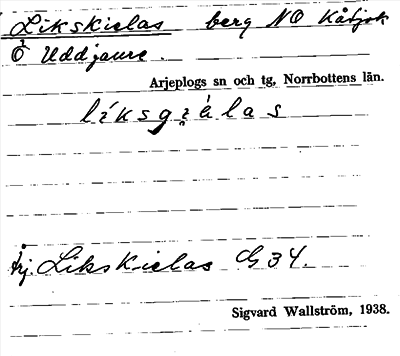 Likskielas berg NO Kåtjok
Ö Uddjaure.
Arjeplogs sn och tg, Norrbottens län.
líksgi̯èlas
Likskielas G34.
Sigvard Wallström, 1938.